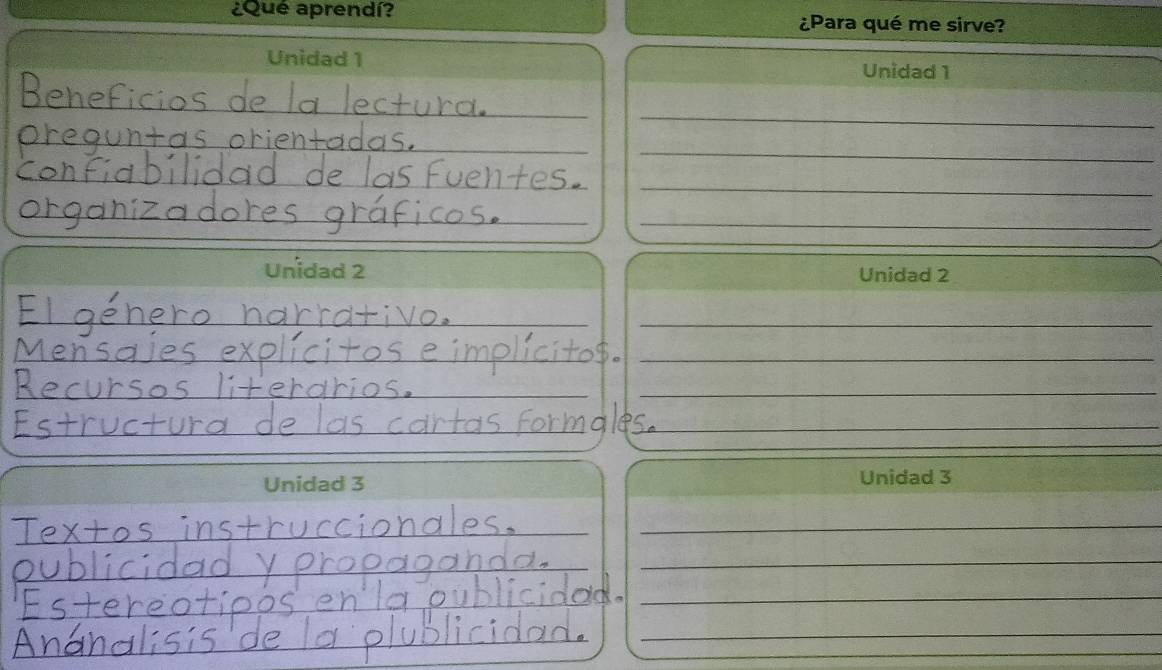 ¿Qué aprendí?
¿Para qué me sirve?
Unidad 1
Beneficios de la lectura.
preguntas orientadas.
confiabilidad de las fuentes.
organizadores gráficos.
Unidad 1
Unidad 2
El género narrativo.
Mensajes explícitos e implícitos.
Recursos literarios.
Estructura de las cartas formales.
Unidad 2
Unidad 3
Textos instruccionales.
publicidad y propaganda.
Estereotipos en la publicidad.
Anánalisis de la plublicidad.
Unidad 3